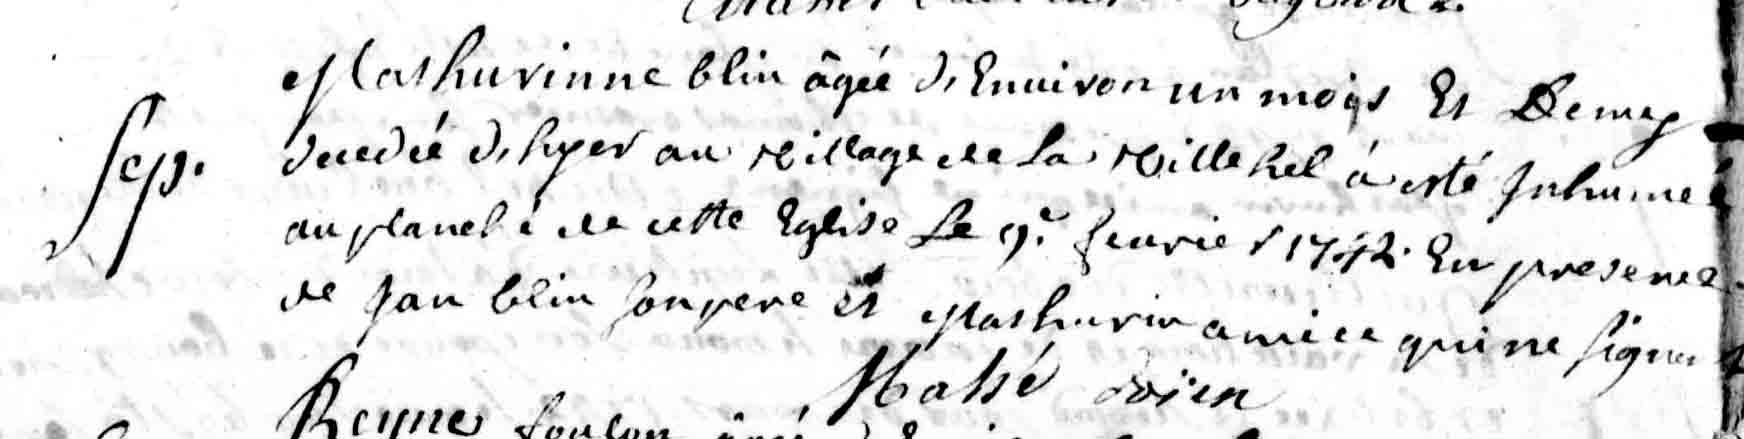 Mathurinne blin âgée d'Enuiron un moys Et Demy
Sep. decedée d'hyer au village de La Ville hel á esté Inhumée
au planché de cette Eglise Le 9e. feurier 1742. En presence
de Jan blin son pere et Mathurin amice qui ne signent
Mahé doïen
Reyne âgée